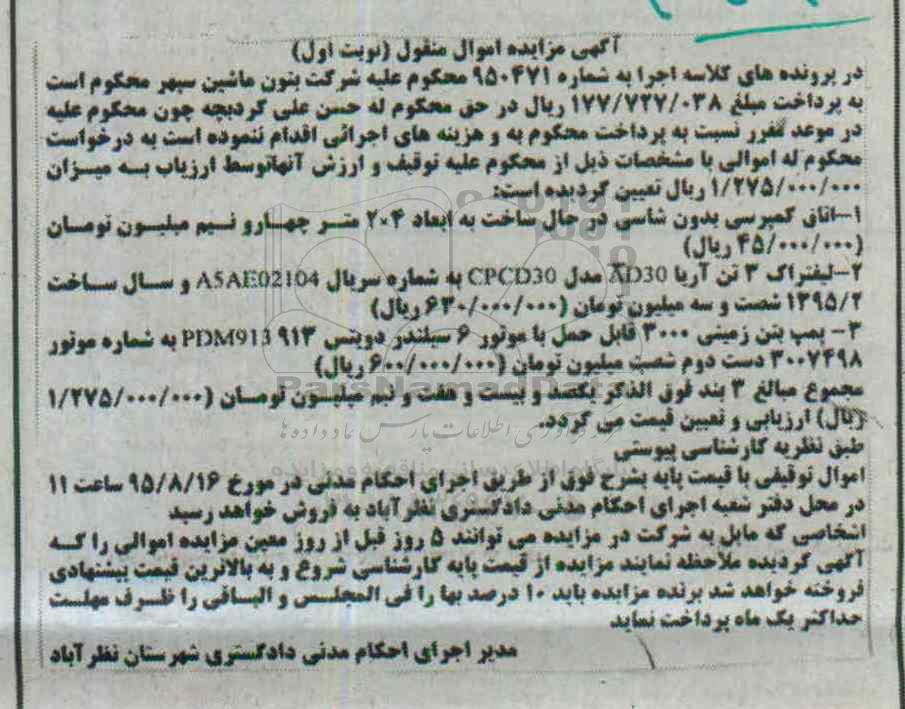 آگهی مزایده اموال منقول (نوبت اول)
در پرونده های کلاسه اجرا به شماره ۹۵۰۴۷۱ محکوم علیه شرکت بتون ماشین سپهر محکوم است
به پرداخت مبلغ ۱۷۷/۷۲۷/۰۳۸ ریال در حق محکوم له حسن علی گردبچه چون محکوم علیه
در موعد مقرر نسبت به پرداخت محکوم به و هزینه های اجرائی اقدام ننموده است به درخواست
محکوم له اموالی با مشخصات ذیل از محکوم علیه توقیف و ارزش آنهاتوسط ارزیاب به میزان
۱/۲۷۵/۰۰۰/۰۰۰ ریال تعیین گردیده است:
۱-اتاق کمپرسی بدون شاسی در حال ساخت به ابعاد ۴×۲ متر چهارو نیم میلیون تومان
(۴۵/۰۰۰/۰۰۰ ریال)
۲-لیفتراک ۳ تن آریا AD30 مدل CPCD30 به شماره سریال A5AE02104 و سال ساخت
۱۳۹۵/۲ شصت و سه میلیون تومان (۶۳۰/۰۰۰/۰۰۰ ریال)
۳- پمپ بتن زمینی ۳۰۰۰ قابل حمل با موتور ۶ سیلندر دویتس ۹۱۳ PDM913 به شماره موتور
۳۰۰۷۴۹۸ دست دوم شصت میلیون تومان (۶۰۰/۰۰۰/۰۰۰ ریال)
ParsNamadData
مجموع مبالغ ۳ بند فوق الذکر یکصد و بیست و هفت و نیم میلیون تومان (۱/۲۷۵/۰۰۰/۰۰۰
ریال) ارزیابی و تعیین قیمت می گردد.
طبق نظریه کارشناسی پیوستی
اموال توقیفی با قیمت پایه بشرح فوق از طریق اجرای احکام مدنی در مورخ ۹۵/۸/۱۶ ساعت ۱۱
در محل دفتر شعبه اجرای احکام مدنی دادگستری نظرآباد به فروش خواهد رسید
اشخاصی که مایل به شرکت در مزایده می توانند ۵ روز قبل از روز معین مزایده اموالی را که
آگهی گردیده ملاحظه نمایند مزایده از قیمت پایه کارشناسی شروع و به بالاترین قیمت پیشنهادی
فروخته خواهد شد برنده مزایده باید ۱۰ درصد بها را فی المجلس و الباقی را ظرف مهلت
حداکثر یک ماه پرداخت نماید
مدیر اجرای احکام مدنی دادگستری شهرستان نظرآباد